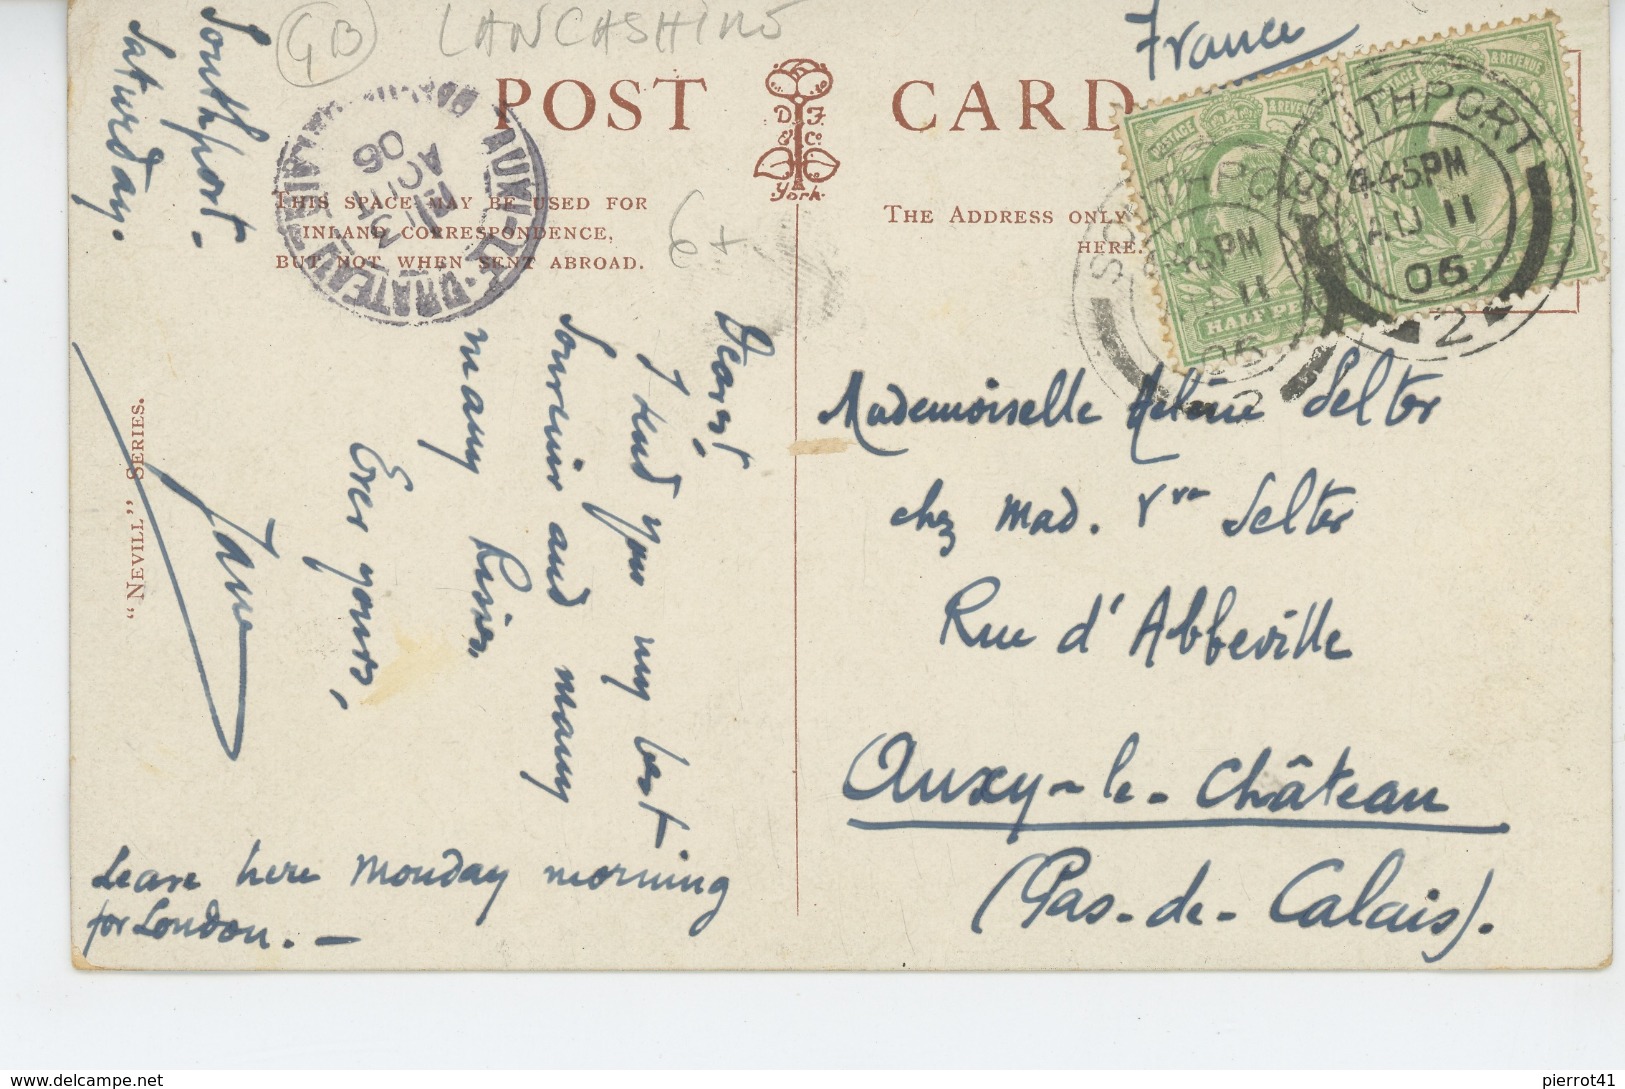 GB LANCASHIRE
France
POST CARD
D.F. & Co.
York.
THIS SPACE MAY BE USED FOR
INLAND CORRESPONDENCE,
BUT NOT WHEN SENT ABROAD.
THE ADDRESS ONLY
HERE.
POSTAGE & REVENUE
HALF PE
SOUTHPORT
4.45PM
AU 11
06
2
SOUTHPO
45PM
11
06
2
AUXI-LE-CHATEAU
AOUT
06
6+
Southport.
Saturday.
Dearest,
I send you my best
Souvenir and many
many Kisses.
Ever yours,
Jane
Leave here Monday morning
for London. —
"NEVILL" SERIES.
Mademoiselle Hélène Selter
chez Mad. Vve Selter
Rue d'Abbeville
Auxy-le-Château
(Pas-de-Calais).
delcampe.net
pierrot41